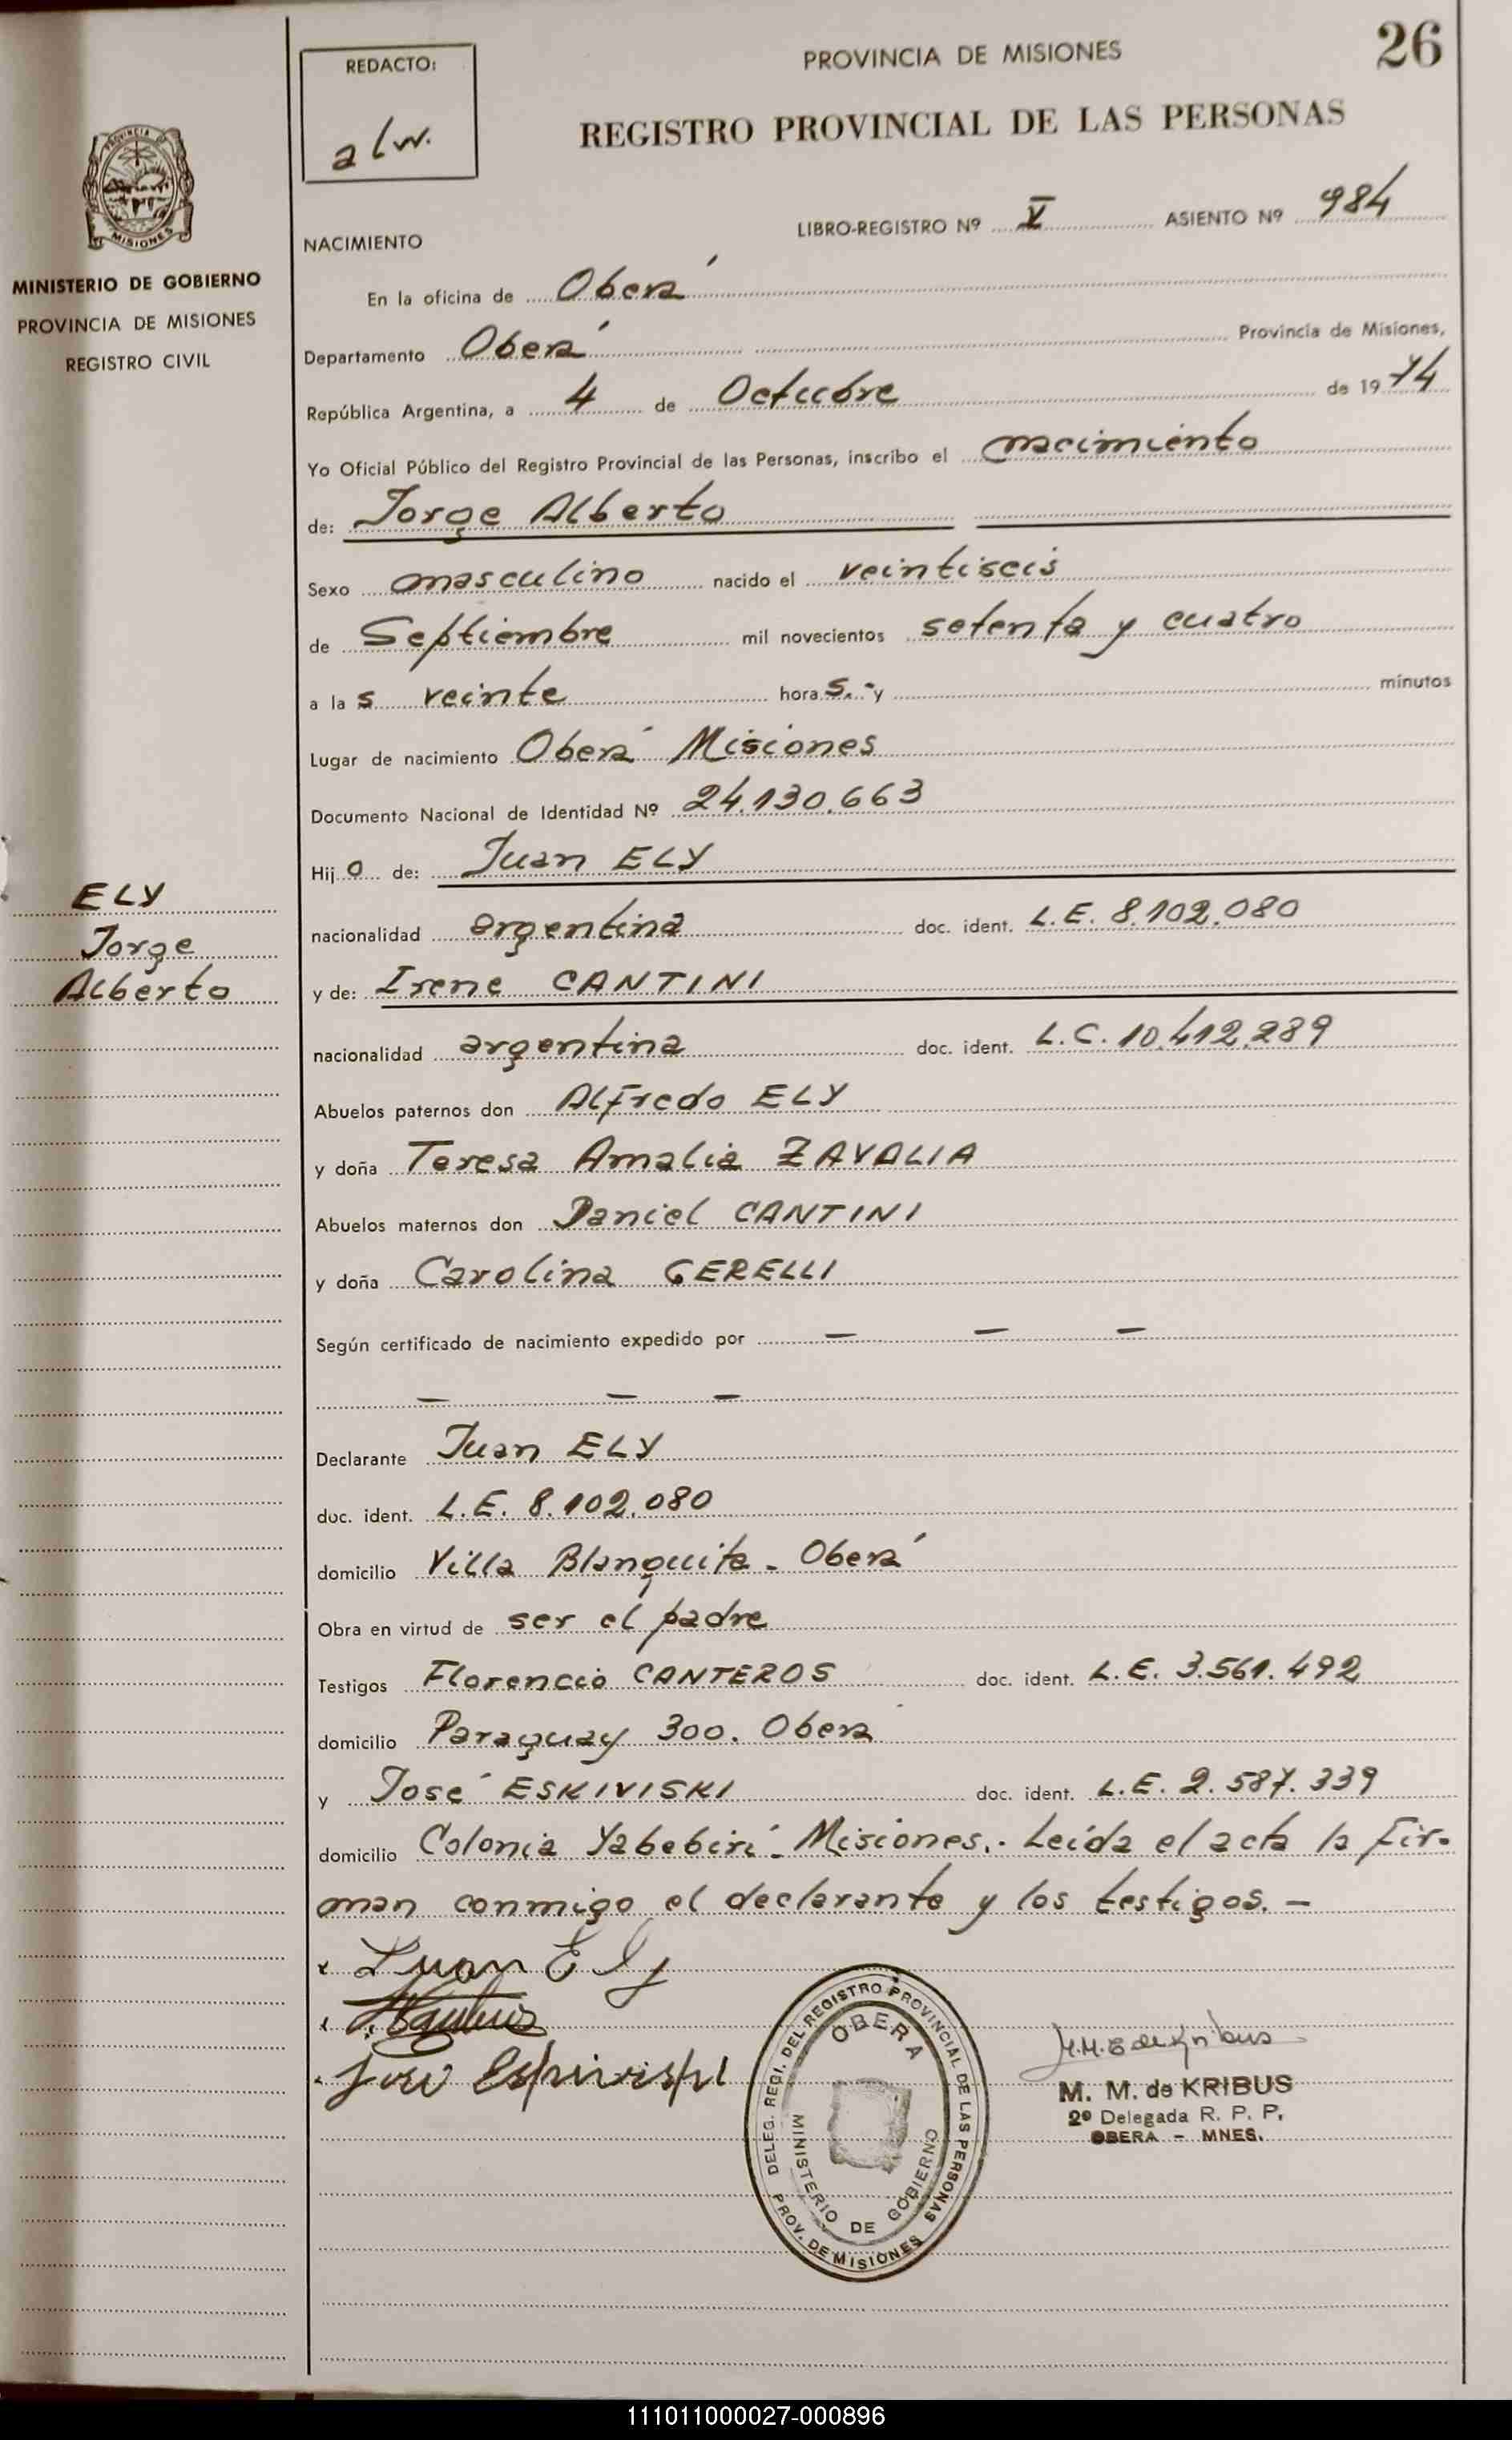 26
REDACTO:
alw.
PROVINCIA DE MISIONES
REGISTRO PROVINCIAL DE LAS PERSONAS
PROVINCIA DE MISIONES
MINISTERIO DE GOBIERNO
PROVINCIA DE MISIONES
REGISTRO CIVIL
NACIMIENTO
LIBRO-REGISTRO Nº V ASIENTO Nº 984
En la oficina de Oberá
Departamento Oberá Provincia de Misiones,
República Argentina, a 4 de Octubre de 1974
Yo Oficial Público del Registro Provincial de las Personas, inscribo el nacimiento
de: Jorge Alberto
Sexo masculino nacido el veintiseis
de Septiembre mil novecientos setenta y cuatro
a las veinte horas.- y minutos
Lugar de nacimiento Oberá Misiones
Documento Nacional de Identidad Nº 24.130.663
Hijo de: Juan ELY
ELY
Jorge
Alberto
nacionalidad argentina doc. ident. L.E. 8.102.080
y de: Irene CANTINI
nacionalidad argentina doc. ident. L.C. 10.412.289
Abuelos paternos don Alfredo ELY
y doña Teresa Amalia ZAVALIA
Abuelos maternos don Daniel CANTINI
y doña Carolina GERELLI
Según certificado de nacimiento expedido por — — —
— — —
Declarante Juan ELY
doc. ident. L.E. 8.102.080
domicilio Villa Blanquita - Oberá
Obra en virtud de ser el padre
Testigos Florencio CANTEROS doc. ident. L.E. 3.561.492
domicilio Paraguay 300. Oberá
y José ESKIVISKI doc. ident. L.E. 2.587.339
domicilio Colonia Yabebirí - Misiones.- Leída el acta la fir-
man conmigo el declarante y los testigos. -
x Juan Ely
M.M. de Kribus
M. M. de KRIBUS
2º Delegada R. P. P.
OBERA - MNES.
DELEG. REGI. DEL REGISTRO PROVINCIAL DE LAS PERSONAS
PROV. DE MISIONES
OBERA
MINISTERIO DE GOBIERNO
111011000027-000896